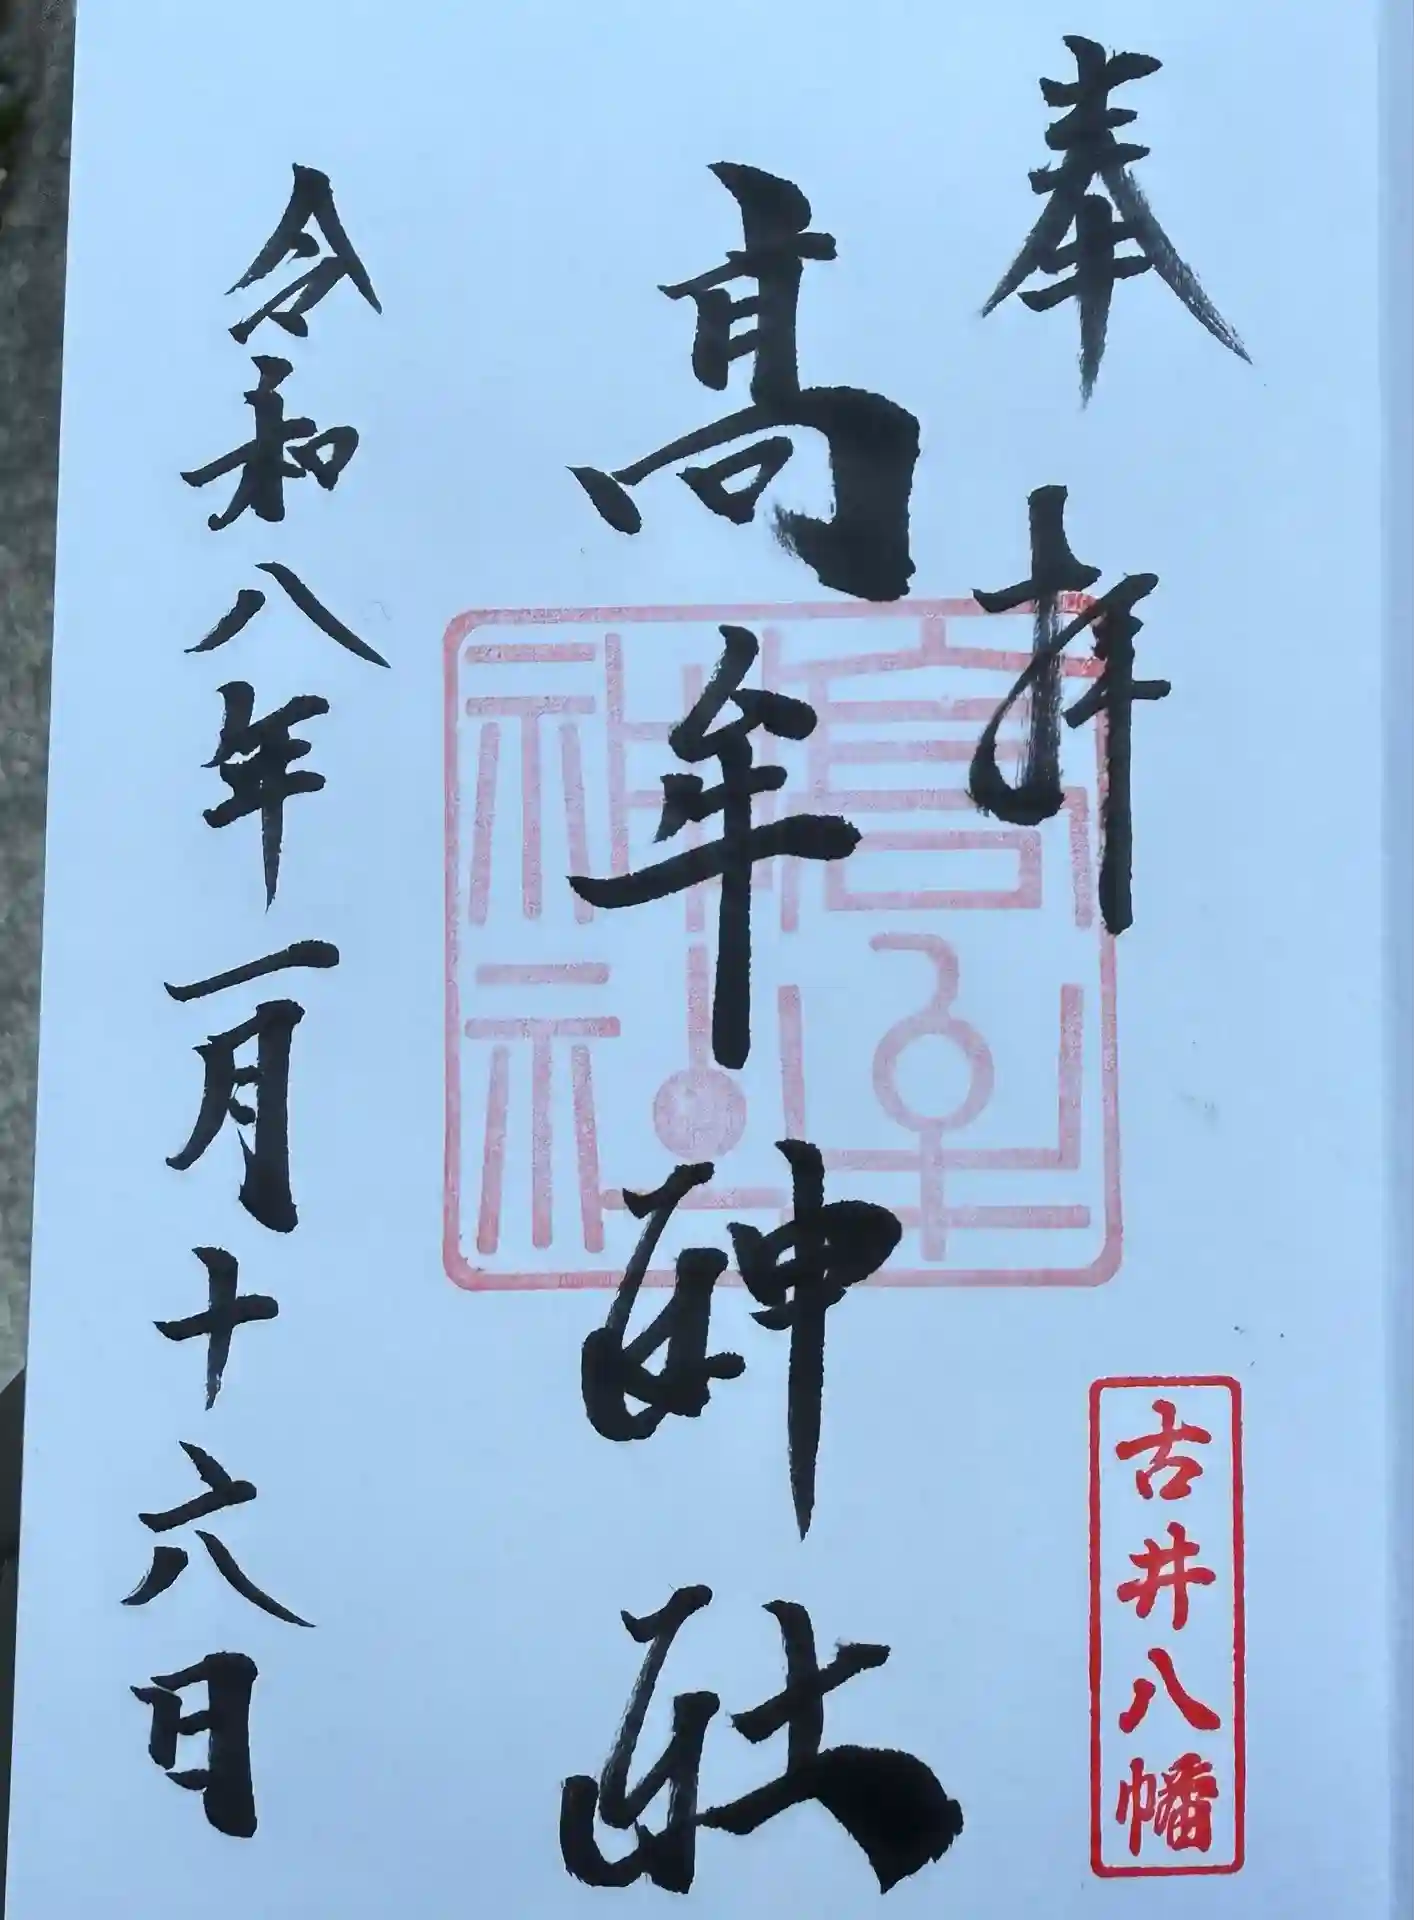 奉拝
古井八幡
高牟神社
高牟神社
令和八年一月十六日